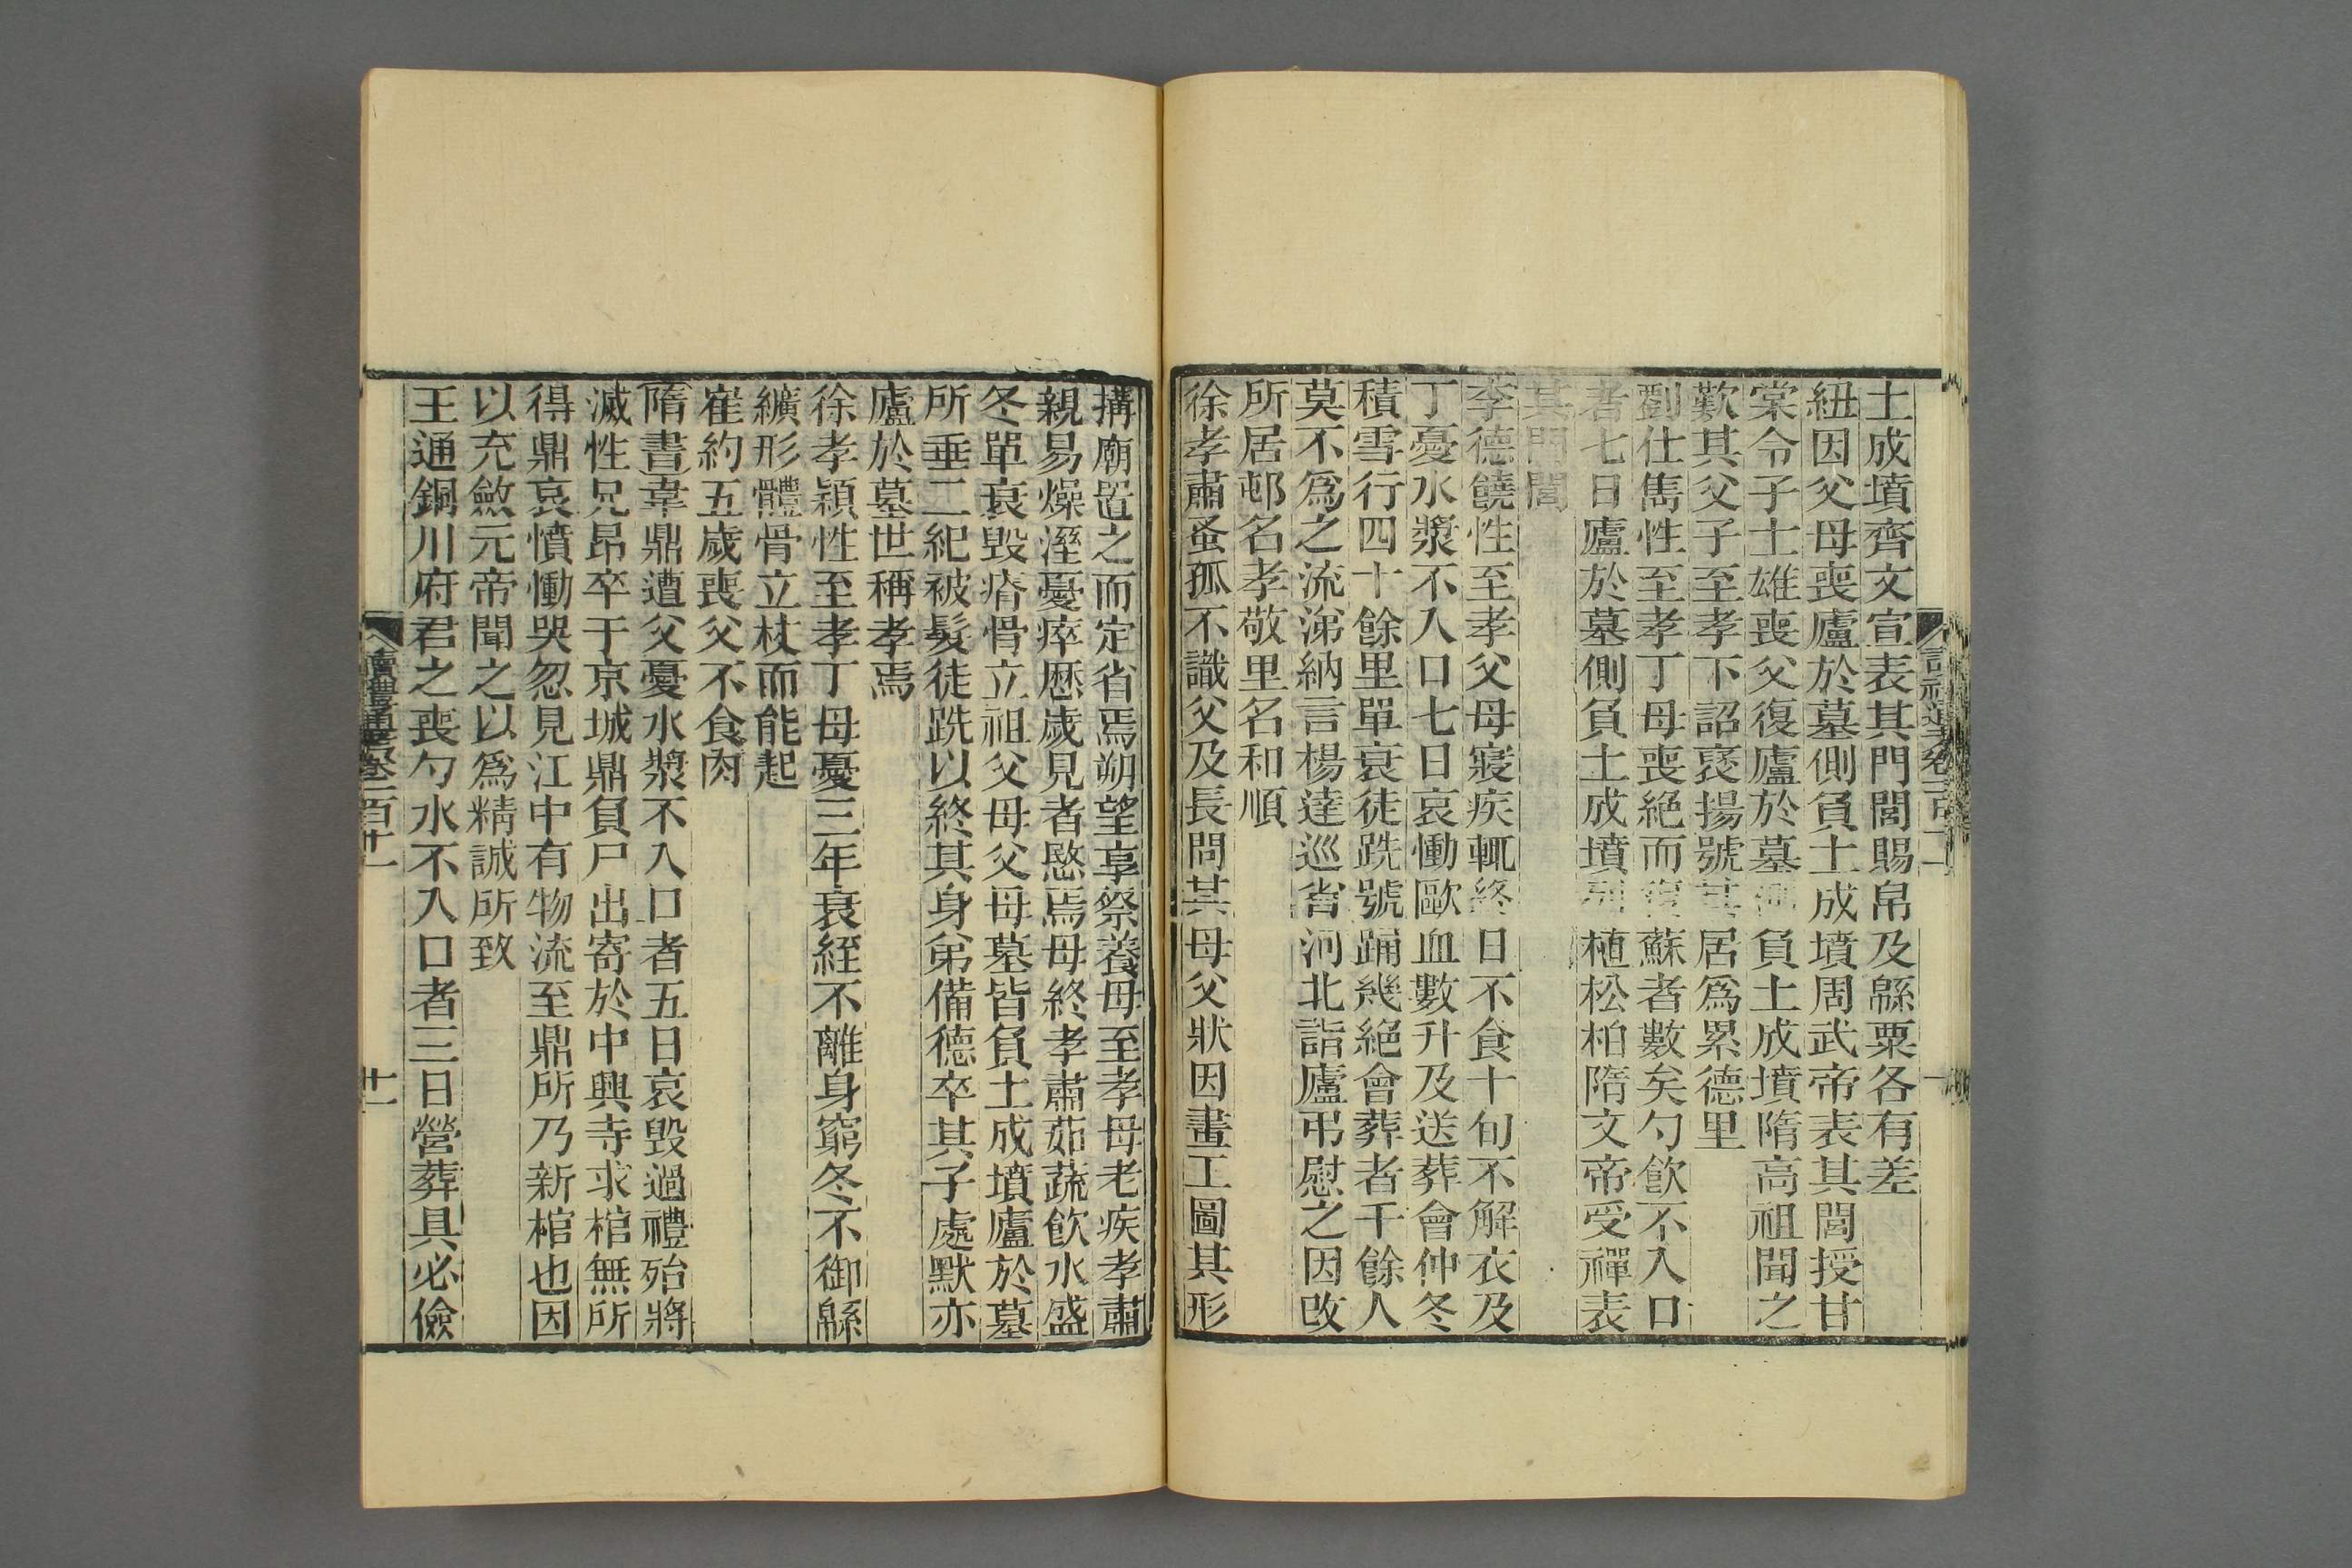 土成墳齊文宣表其門閭賜帛及緜粟各有差
紐因父母喪廬於墓側負土成墳周武帝表其閭授甘
棠令子士雄喪父復廬於墓側負土成墳隋高祖聞之
歎其父子至孝下詔褒揚號其居爲累德里
劉仕儁性至孝丁母喪絶而復蘇者數矣勺飮不入口
者七日廬於墓側負土成墳列植松柏隋文帝受禪表
其門閭
李德饒性至孝父母寢疾輒終日不食十旬不解衣及
丁憂水漿不入口七日哀慟歐血數升及送葬會仲冬
積雪行四十餘里單衰徒跣號踊幾絶會葬者千餘人
莫不爲之流涕納言楊達巡省河北詣廬弔慰之因改
所居邨名孝敬里名和順
徐孝肅蚤孤不識父及長問其母父狀因畫工圖其形
搆廟置之而定省焉朔望享祭養母至孝母老疾孝肅
親易燥溼憂瘁歷歲見者愍焉母終孝肅茹蔬飮水盛
冬單衰毁瘠骨立祖父母父母墓皆負土成墳廬於墓
所垂二紀被髮徒跣以終其身弟備德卒其子處默亦
廬於墓世稱孝焉
徐孝穎性至孝丁母憂三年衰絰不離身窮冬不御緜
纊形體骨立杖而能起
崔約五歲喪父不食肉
隋書韋鼎遭父憂水漿不入口者五日哀毁過禮殆將
滅性兄昂卒于京城鼎負尸出寄於中興寺求棺無所
得鼎哀憤慟哭忽見江中有物流至鼎所乃新棺也因
以充斂元帝聞之以爲精誠所致
王通銅川府君之喪勺水不入口者三日營葬具必儉
讀禮通考卷一百十一
十一